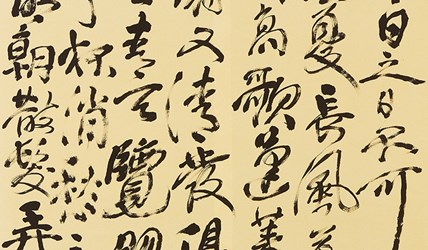 日之日不可
憂長風萬
高歌蓬萊
又清發俱
青天覽明
杯消愁
明朝散髮弄